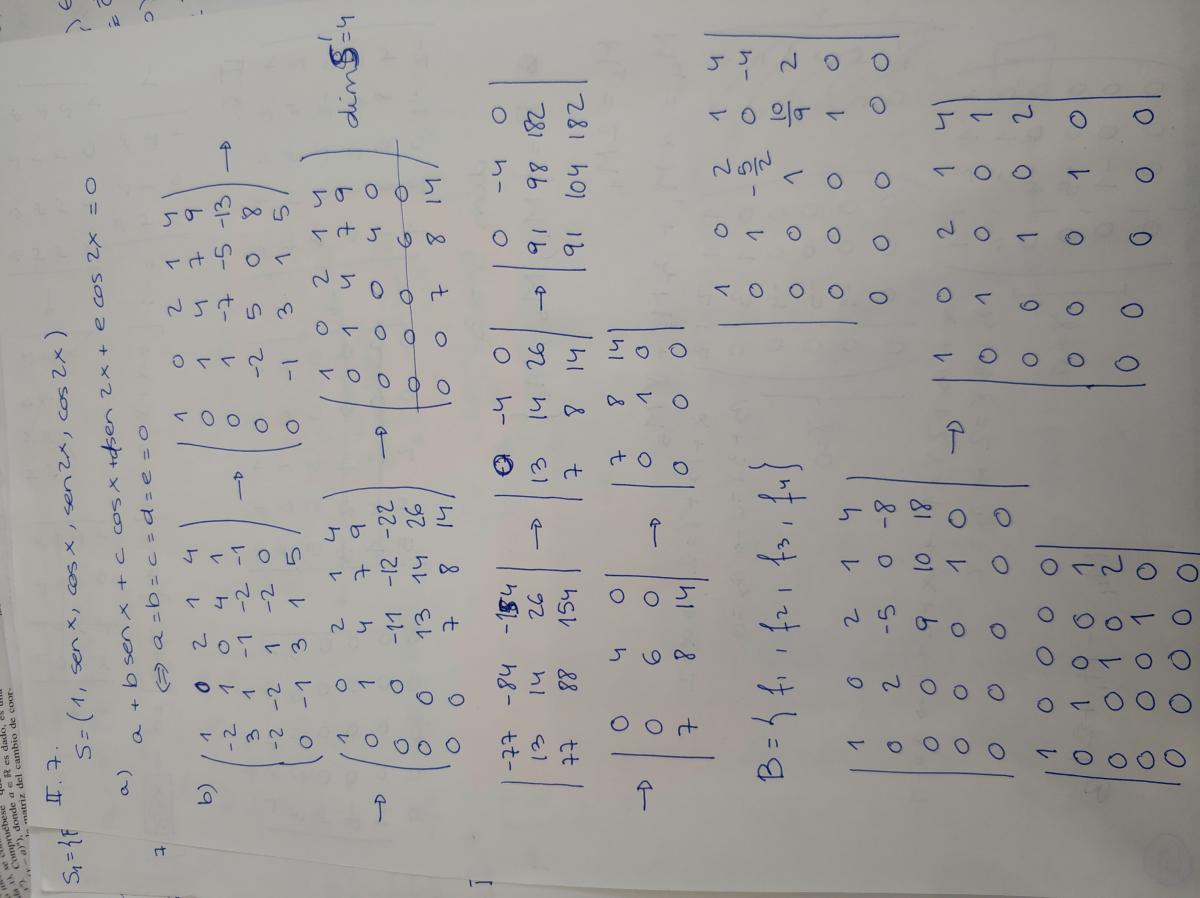 II. 7.
S₁={
S=(1, sen x, cos x, sen 2x, cos 2x)
a) a + b sen x + c cos x + d sen 2x + e cos 2x = 0
7
⇔ a=b=c=d=e=0
b)
1 0 2 1 4
-2 1 0 4 1
3 1 -1 -2 -1
-2 -2 1 -2 0
0 -1 3 1 5
→
1 0 2 1 4
0 1 4 7 9
0 1 -7 -5 -13
0 -2 5 0 8
0 -1 3 1 5
→
→
1 0 2 1 4
0 1 4 7 9
0 0 -11 -12 -22
0 0 13 14 26
0 0 7 8 14
→
1 0 2 1 4
0 1 4 7 9
0 0 0 4 0
0 0 0 6 0
0 0 7 8 14
dim S'=4
-77 -84 -154
13 14 26
77 88 154
→
0 -4 0
13 14 26
7 8 14
→
0 -4 0
91 98 182
91 104 182
→
0 4 0
0 6 0
7 8 14
→
7 8 14
0 1 0
0 0 0
B={f₁, f₂, f₃, f₄}
1 0 2 1 4
0 2 -5 0 -8
0 0 9 10 18
0 0 0 1 0
0 0 0 0 0
1 0 2 1 4
0 1 -5/2 0 -4
0 0 1 10/9 2
0 0 0 1 0
0 0 0 0 0
→
1 0 2 1 4
0 1 0 0 1
0 0 1 0 2
0 0 0 1 0
0 0 0 0 0
1 0 0 0 0
0 1 0 0 1
0 0 1 0 2
0 0 0 1 0
0 0 0 0 0